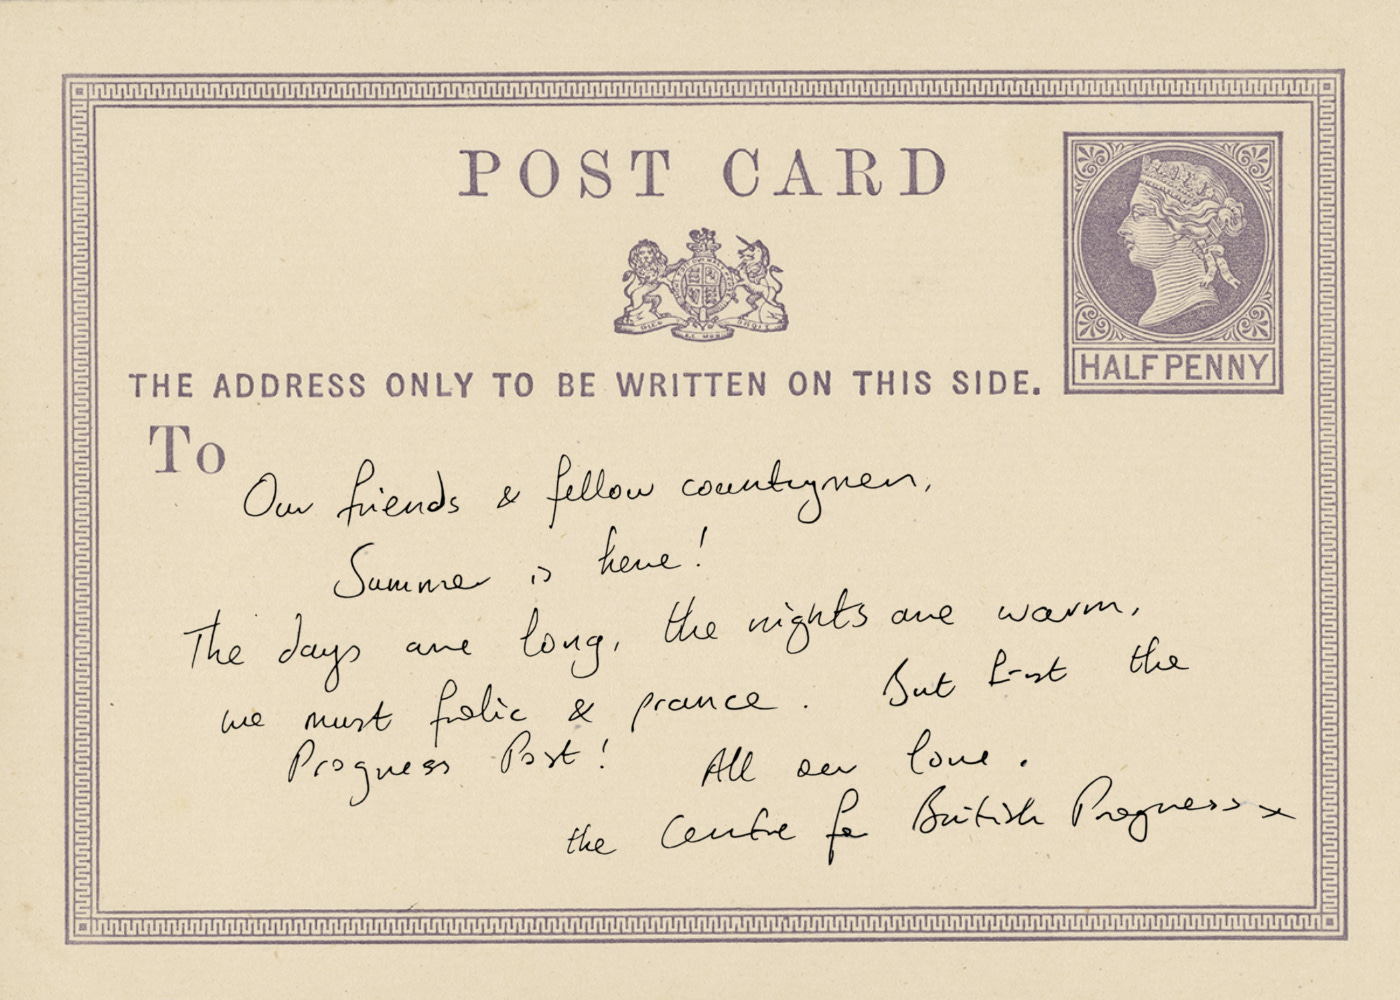 POST CARD
HALFPENNY
THE ADDRESS ONLY TO BE WRITTEN ON THIS SIDE.
To
Our friends & fellow countrymen,
Summer is here!
The days are long, the nights are warm,
we must frolic & prance. But first the
Progress Post! All our love.
the Centre for British Progress x